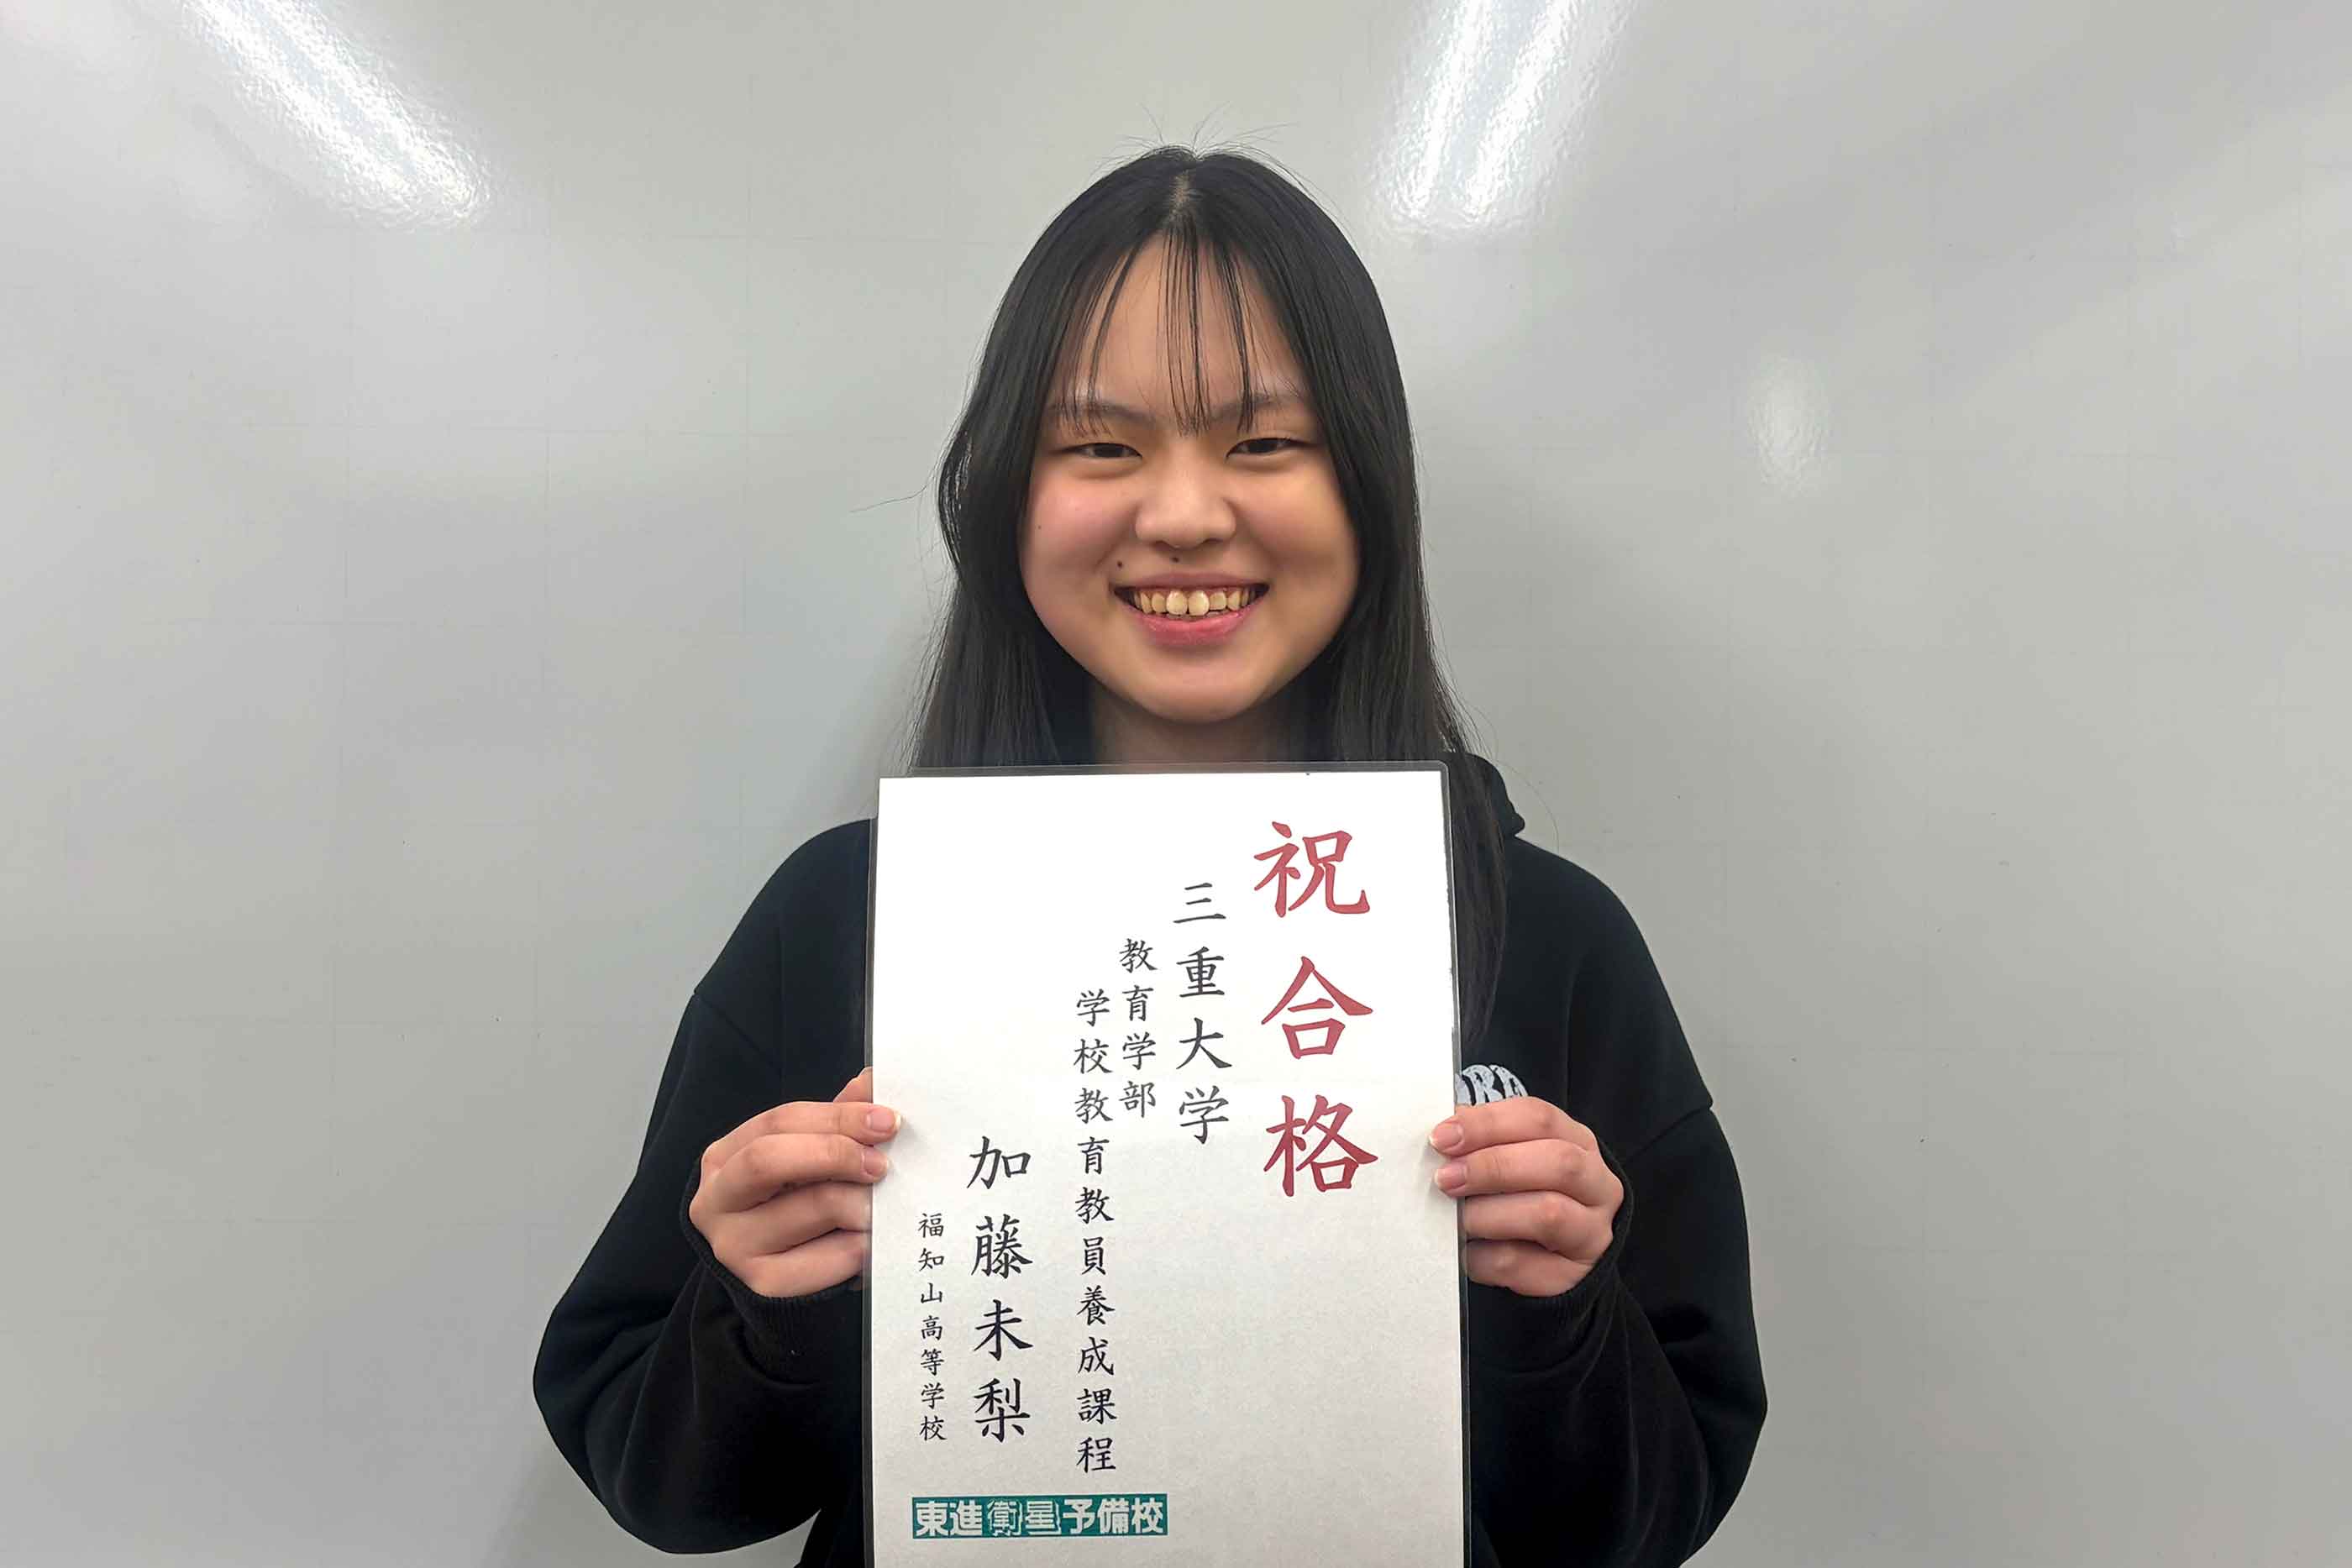 祝合格
三重大学
教育学部
学校教育教員養成課程
加藤未梨
福知山高等学校
東進衛星予備校